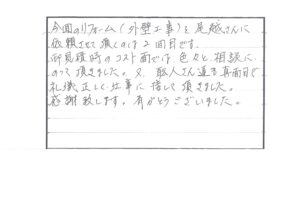 今回のリフォーム(外壁工事)を尾越さんに
依頼させて頂くのは2回目です。
御見積時のコスト面では色々と相談に
のって頂きました。又、職人さん達も真面目で
礼儀正しく仕事に徹して頂きました。
感謝致します。有がとうございました。